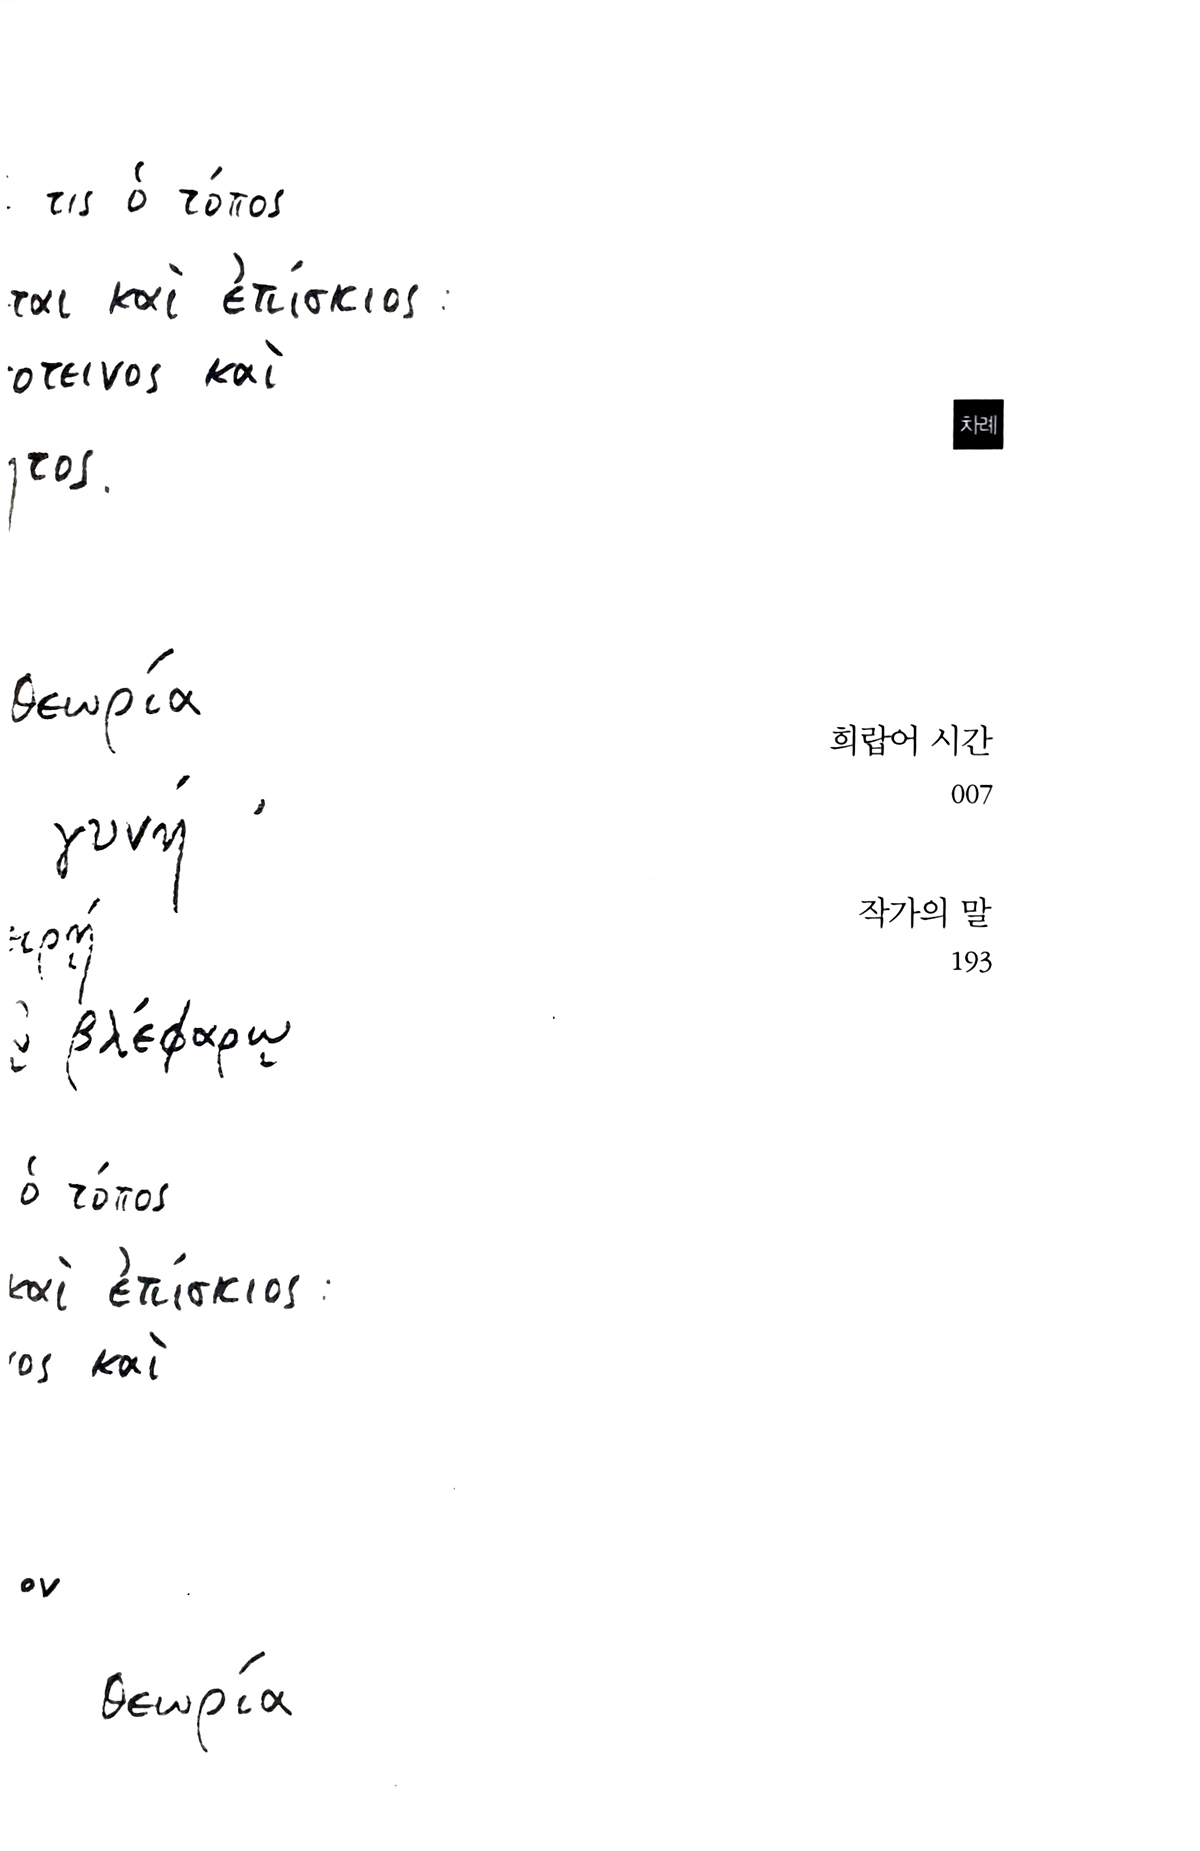 τις ὁ τόπος
ται καὶ ἐπίσκιος :
οτεινος καὶ
τος.
θεωρία
γυνή
βλέφαρῳ
ὁ τόπος
καὶ ἐπίσκιος :
ος καὶ
ον
θεωρία
차례
희랍어 시간
007
작가의 말
193